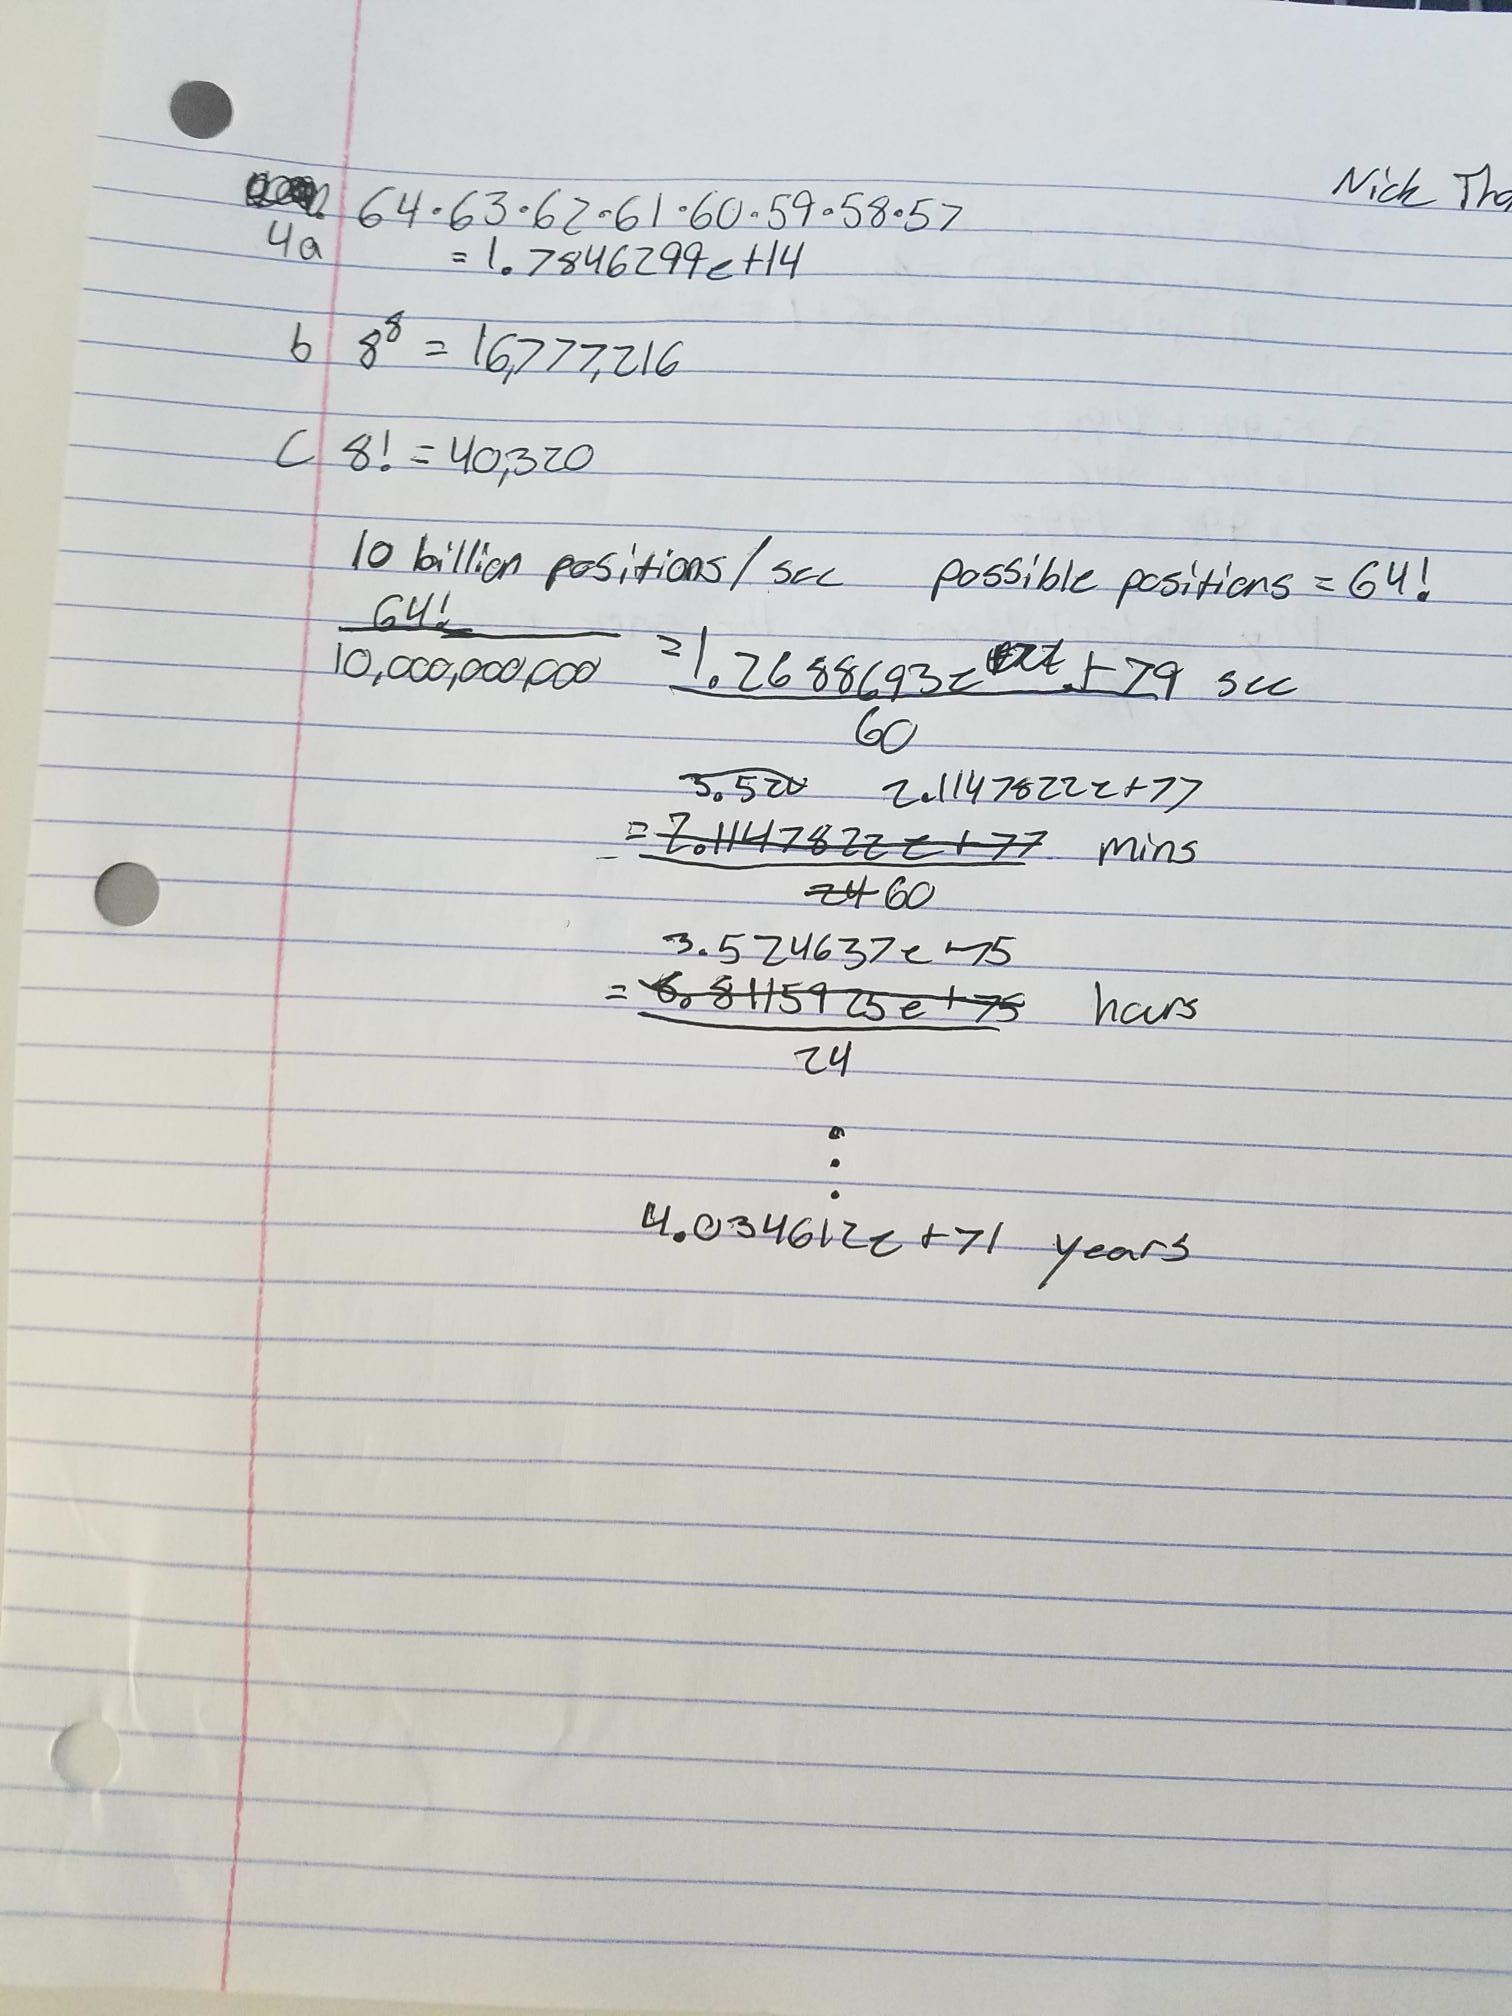 Nick Tho
64·63·62·61·60·59·58·57
4a = 1.7846299e+14
b 8^8 = 16,777,216
C 8! = 40,320
10 billion positions/sec possible positions = 64!
64!
10,000,000,000 = 1.2688693e+79 sec
60
3.520 2.1147822e+77
= 2.1147822e+77 mins
24 60
3.524637e+75
= 6.8115925e+75 hours
24
⋮
4.034612e+71 years